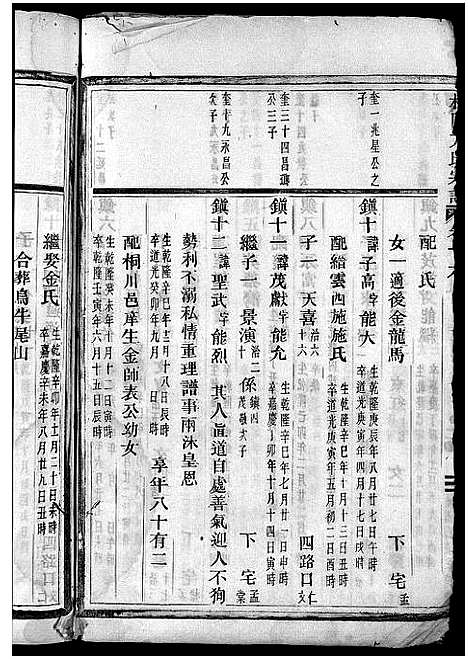 配 氏
女一適後金龍馬 下宅孟
奎一兆星公之子
鎮十 諱子高 字能大 生乾隆庚辰年八月廿七日午時 卒道光庚寅年四月十七日戌時
配緒雲西施施氏 生乾隆辛巳年十月十三日丑時 卒道光庚寅年五月初二日酉時
子一 天喜 浩十六 四路口仁
奎三十四昌瑯公三子
鎮十一 諱茂獻 字能允 生乾隆辛巳年七月廿一日申時 卒嘉慶丁卯年十月十四日寅時
繼子一 景演 浴二 係鎮四茂義次子 下宅棠
奎十九永昌公次子
鎮十二 諱聖武 字能烈 其人眞道自處善氣迎人不徇
勢利不溺私情重理譜事雨沐皇恩
生乾隆辛巳年十二月十八日辰時 卒道光癸卯年九月 享年八十有二
配桐川邑庠生金師表公幼女
生乾隆癸未年十月十二日寅時 卒乾隆壬寅年六月十五日辰時
繼娶金氏 生乾隆辛卯年十二月二十日未時 卒嘉慶辛未年八月廿九日丑時
合葬烏牛尾山 四路口仁